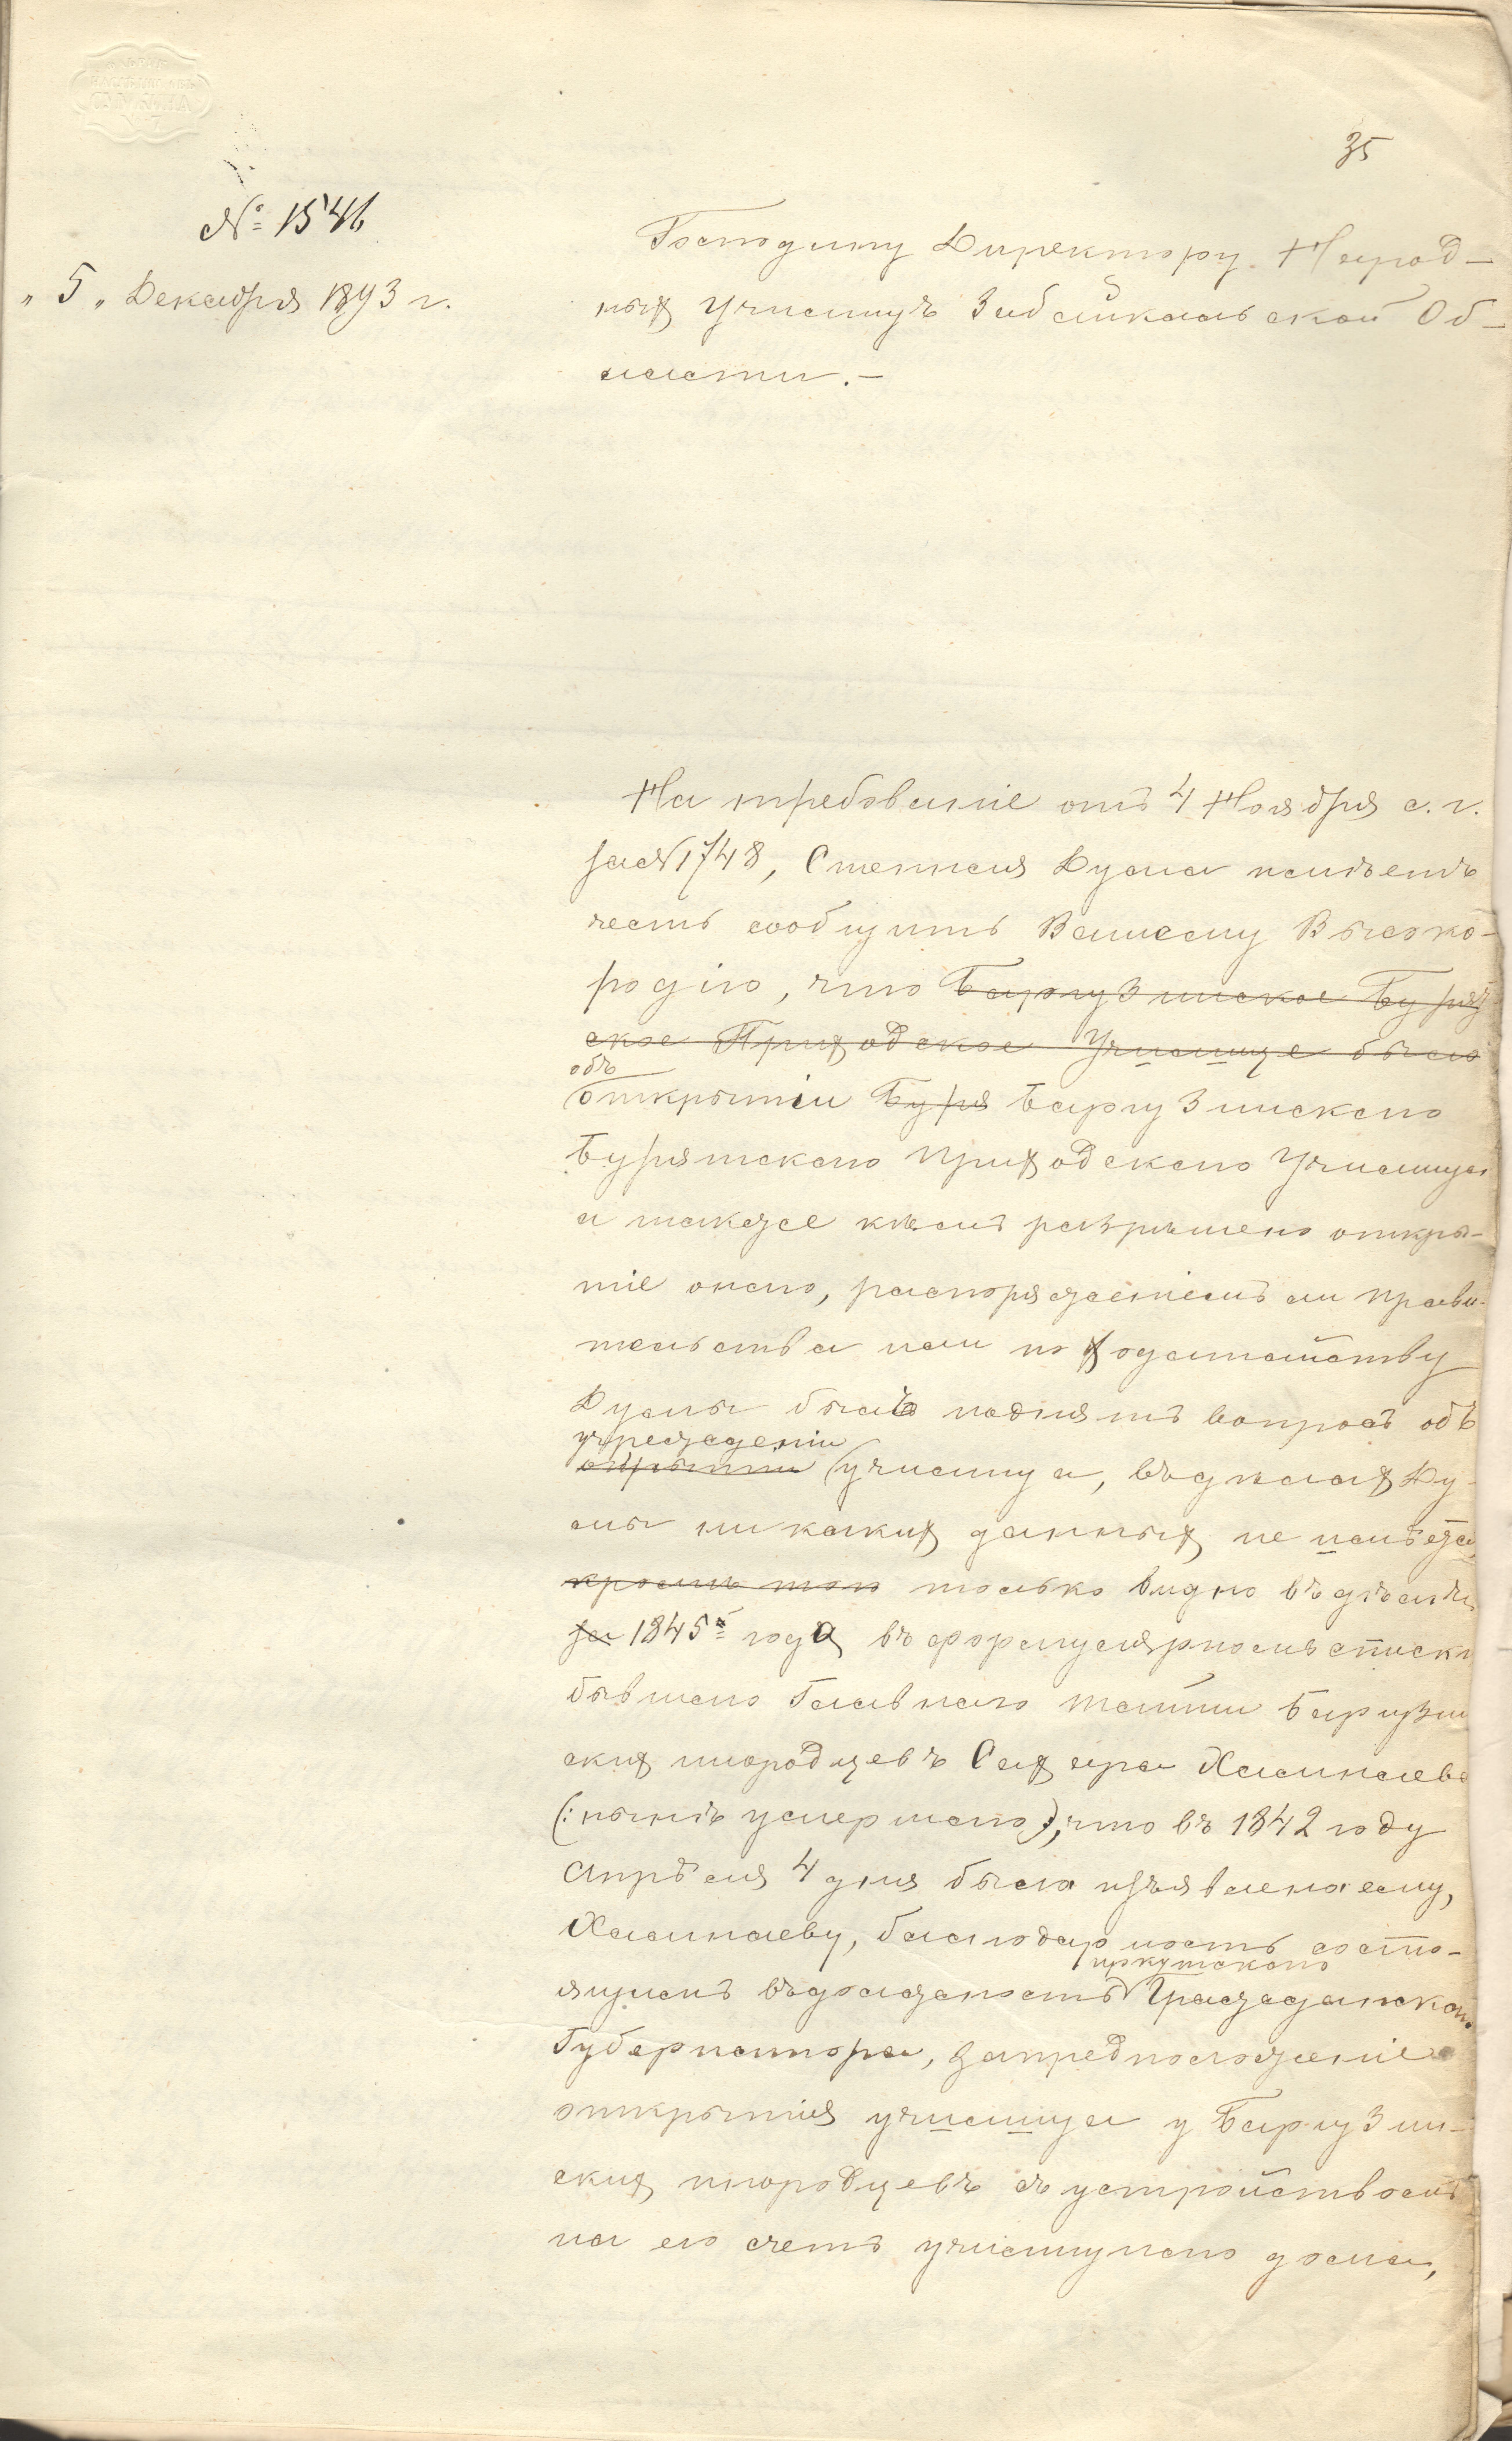 35
№ 1546
„5„ Декабря 1893 г.
Господину Директору Народ-
ныхъ Училищъ Забайкальской Об-
ласти.-
На требованіе отъ 4 Ноября с. г.
за № 1748, Степная Дума имѣетъ
честь сообщить Вашему Высоко-
родію, что Баргузинское Бурят
ское Приходское Училище было
объ
открытіи Буря Баргузинскаго
Бурятскаго Приходскаго Училища
а также кѣмъ разрѣшено откры-
тіе онаго, распоряженіемъ ли Прави-
тельства или по ходатайству
Думы былъ поднятъ вопросъ объ
учрежденіи
открытіи училища, въ дѣлахъ Ду-
мы никакихъ данныхъ не имѣется
кромѣ того только видно въ дѣлѣ
за 1845 года въ формулярномъ списки
бывшаго Главнаго Тайши Баргузин
скихъ инородцевъ Сахара Хамнаева
(: нынѣ умершаго), что въ 1842 году
Апрѣля 4 дня была изъявлена ему,
Хамнаеву, благодарность состо-
иркутскаго
ящимъ въ должность Гражданскаго
Губернатора, за предположеніе
открытія училища у Баргузин-
скихъ инородцевъ съ устройствомъ
на его счетъ училищнаго дома,